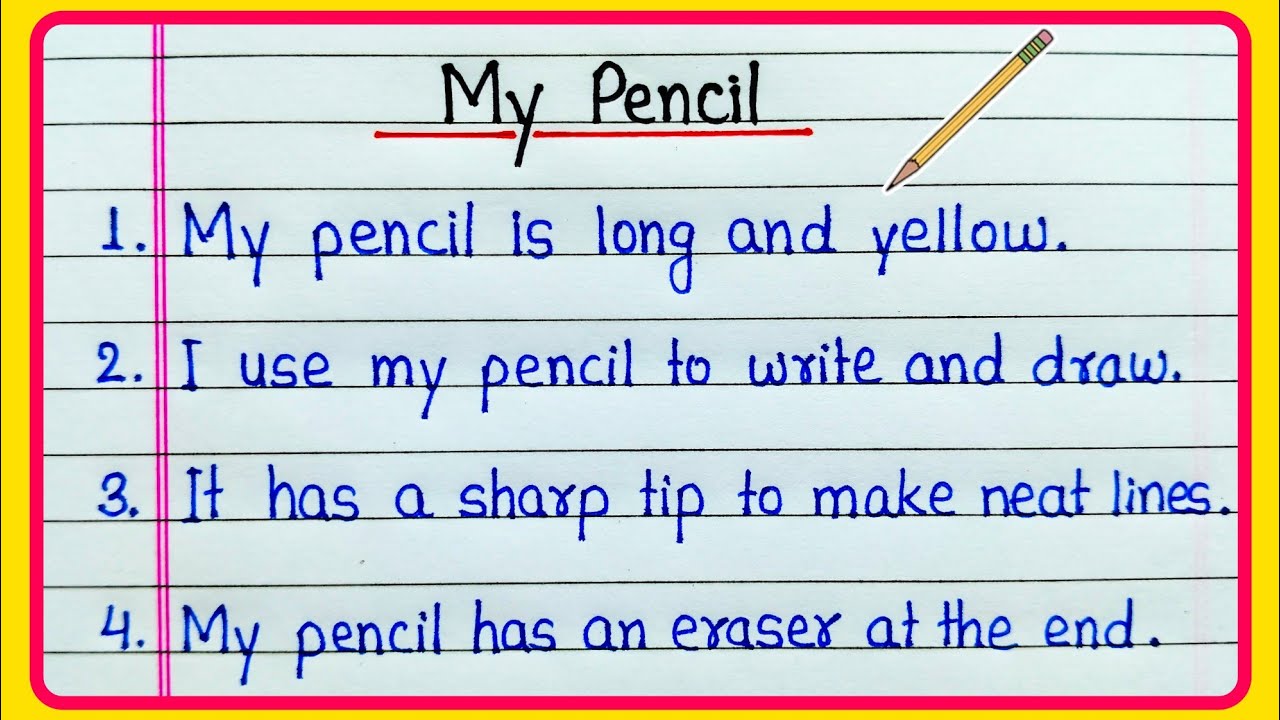 My Pencil
1. My pencil is long and yellow.
2. I use my pencil to write and draw.
3. It has a sharp tip to make neat lines.
4. My pencil has an eraser at the end.